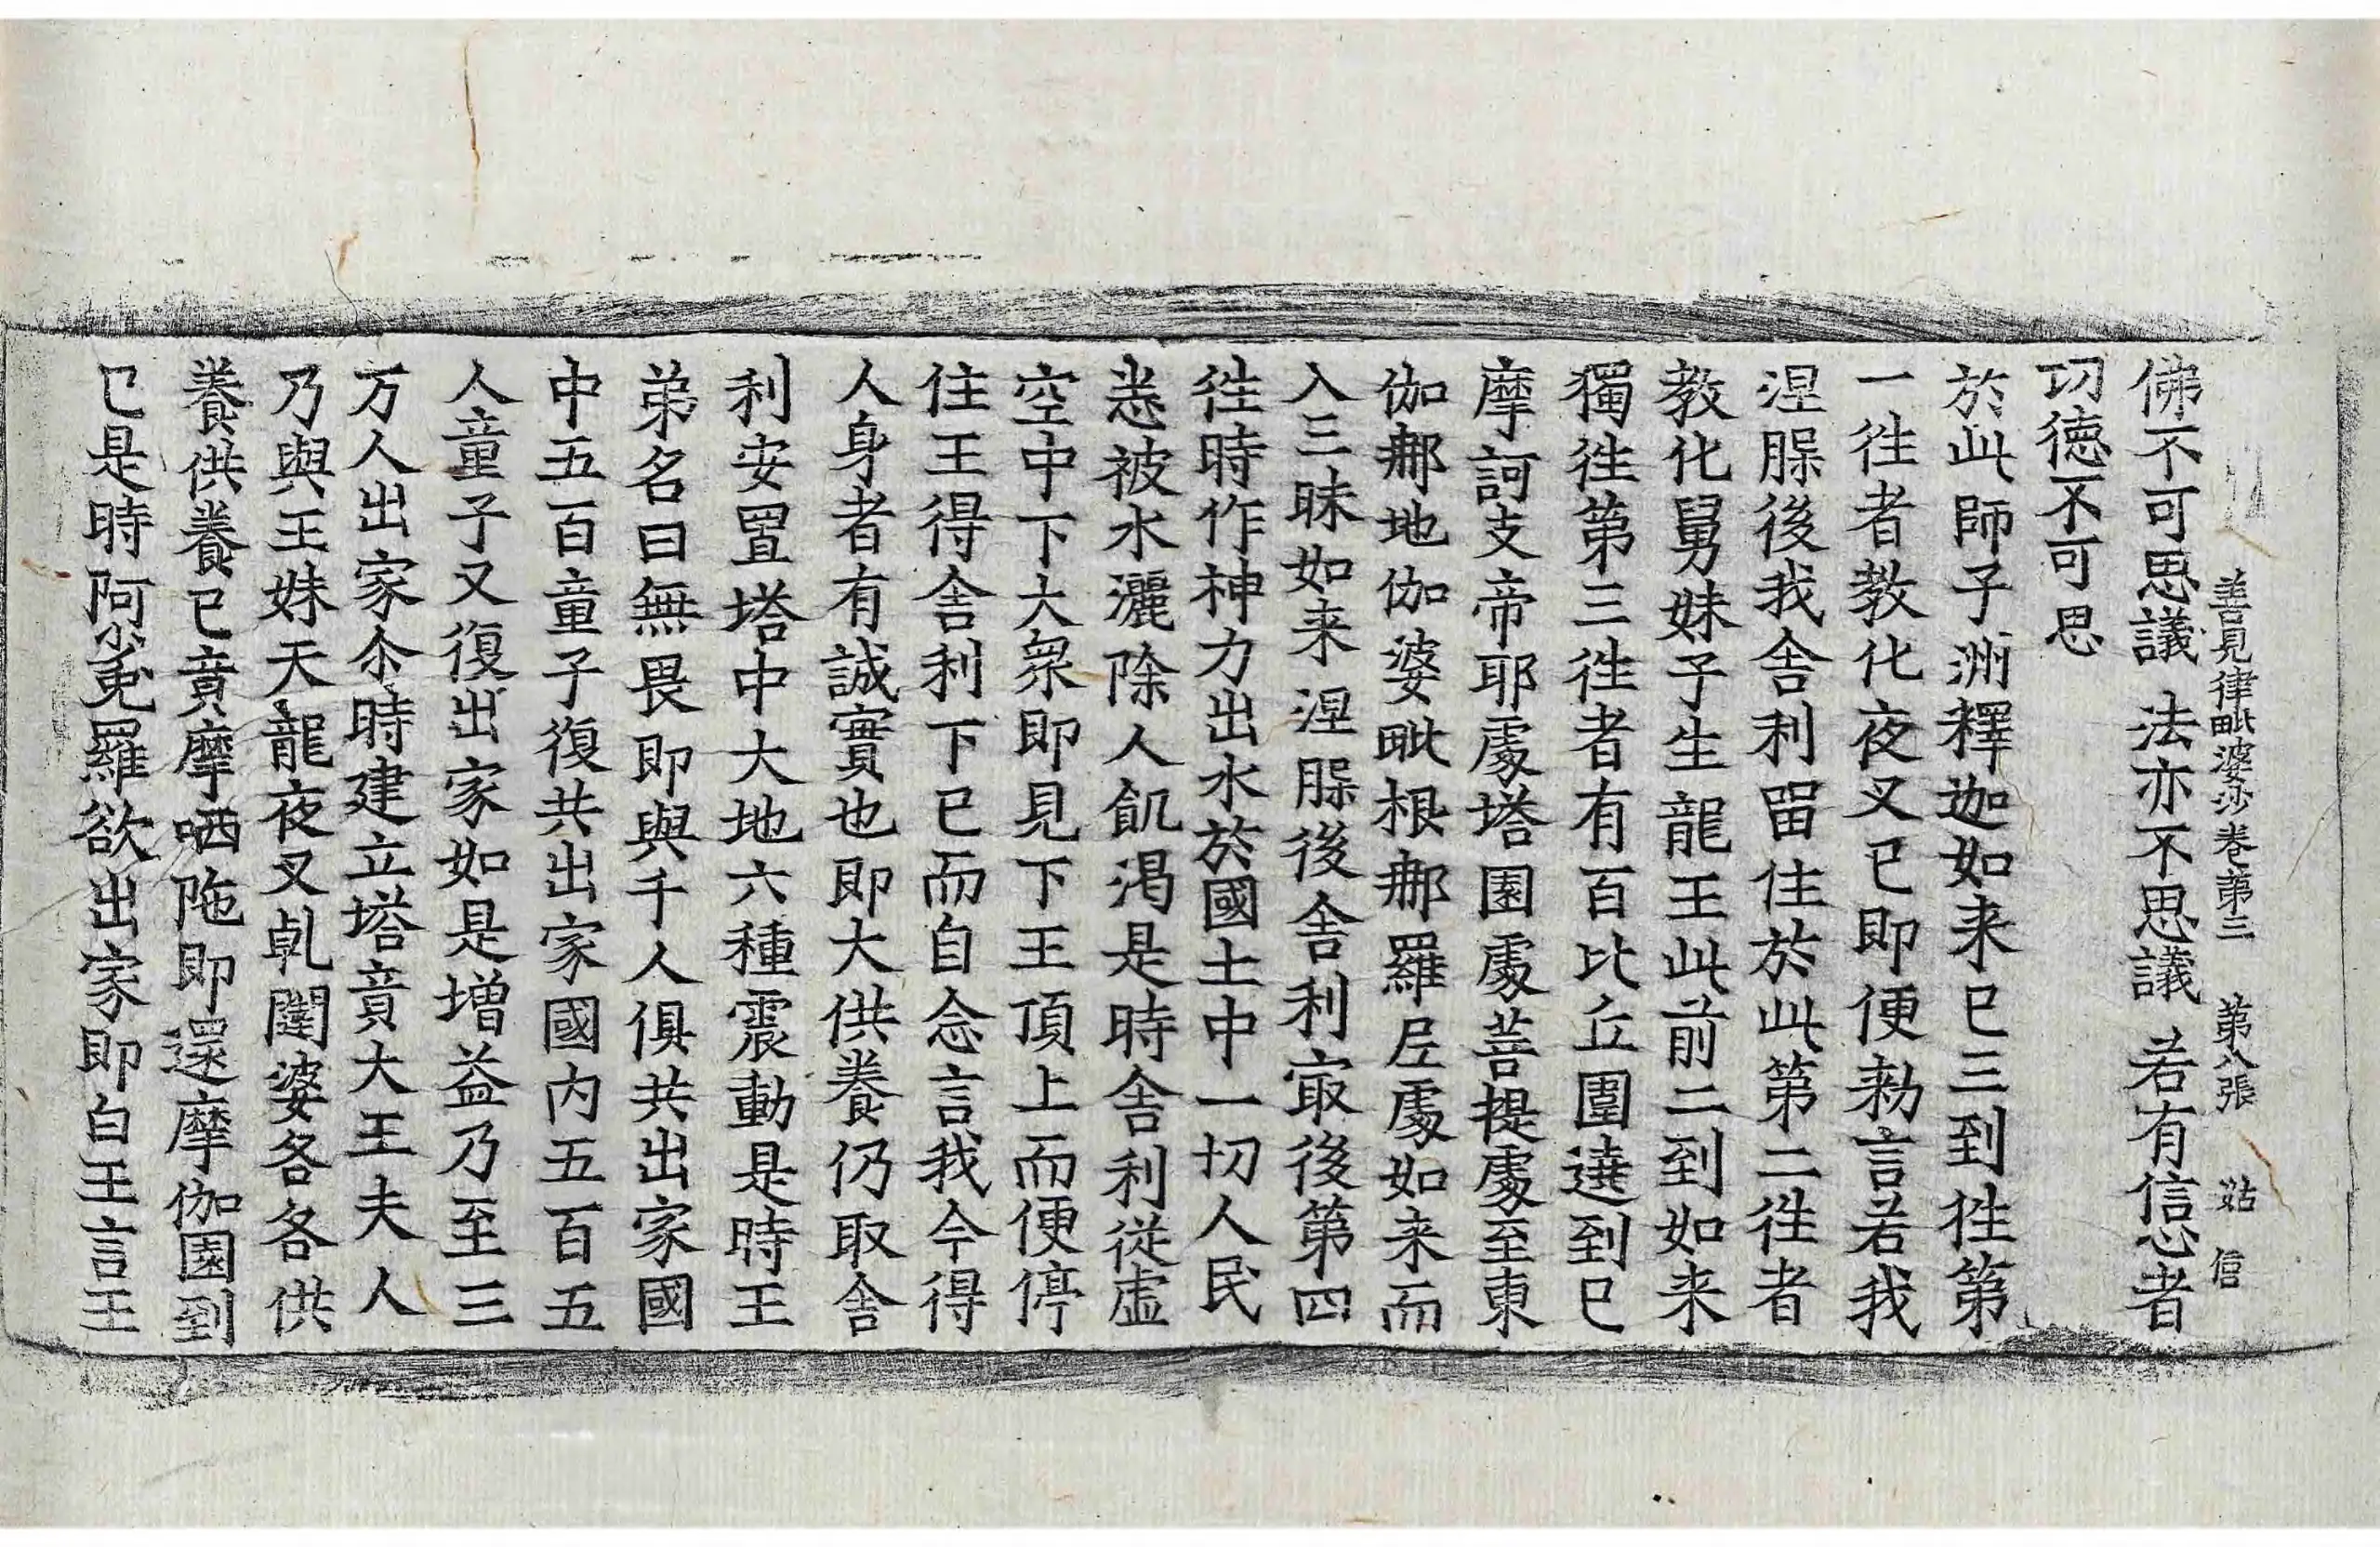 善見律毗婆沙卷第三　第八張　姑　信
佛不可思議　法亦不思議　若有信心者
功德不可思
於此師子洲釋迦如来已三到往第
一往者教化夜叉已即便勑言若我
涅脲後我舎利留住於此第二往者
教化舅妹子生龍王此前二到如来
獨往第三往者有百比丘圍遶到已
摩訶支帝耶處塔園處菩提處至東
伽郍地伽婆毗根郍羅𡰱處如来而
入三昧如来涅脲後舎利㝡後第四
往時作神力出水於國土中一切人民
悉被水灑除人飢渴是時舎利從虛
空中下大衆即見下王頂上而便停
住王得舎利下已而自念言我今得
人身者有誠實也即大供養仍取舎
利安置塔中大地六種震動是時王
弟名曰無畏即與千人俱共出家國
中五百童子復共出家國內五百五
人童子又復出家如是增益乃至三
万人出家尒時建立塔竟大王夫人
乃與王妹天龍夜叉乹闥婆各各供
養供養已竟摩哂陁即還摩伽園到
已是時阿㝹羅欲出家即白王言王